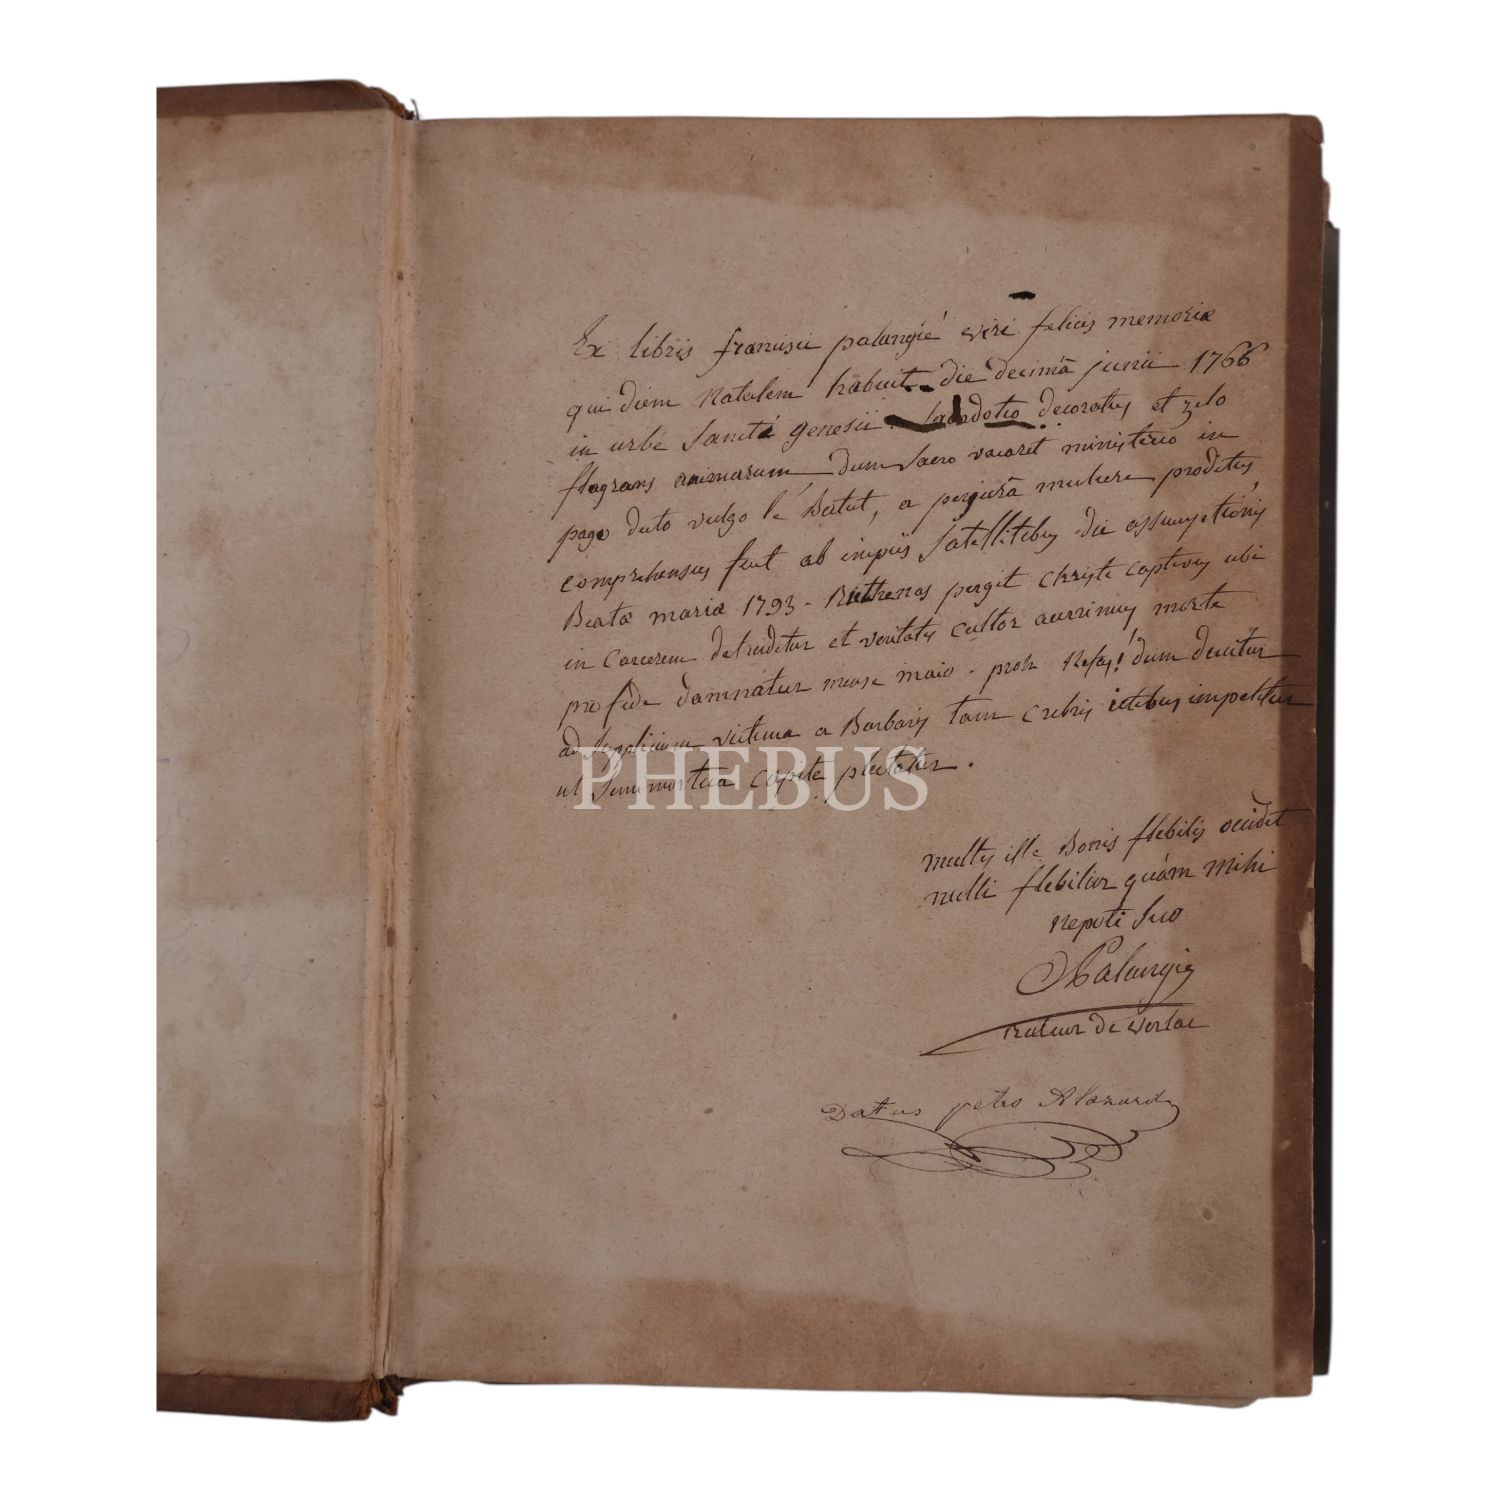 Ex libris francisci palangié viri felicis memoriæ
qui diem Natalem habuit die decimâ junii 1766
in urbe Sancti genesii Sacerdotio decoratus et zelo
flagrans animarum, dum Sacro vacaret ministerio in
pago dicto vulgo le Batut, a perjurâ muliere proditus,
comprehensus fuit ab impiis Satellitibus die assumptionis
Beatæ mariæ 1793 - Ruthenas pergit christi captivus ubi
in Carcerem detruditur et veritatis cultor acerrimus morte
pro fide damnatur mense maio - proh Nefas! dum ducitur
ad Supplicium victima a Barbaris tam crebris ictibus impetitur
ut Semimortua capite plectatur.
multis ille Bonis flebilis occidit
nulli flebilior quàm mihi
Nepoti Suo
Palangié
recteur de vorlac
Datus petro Alazard
PHEBUS